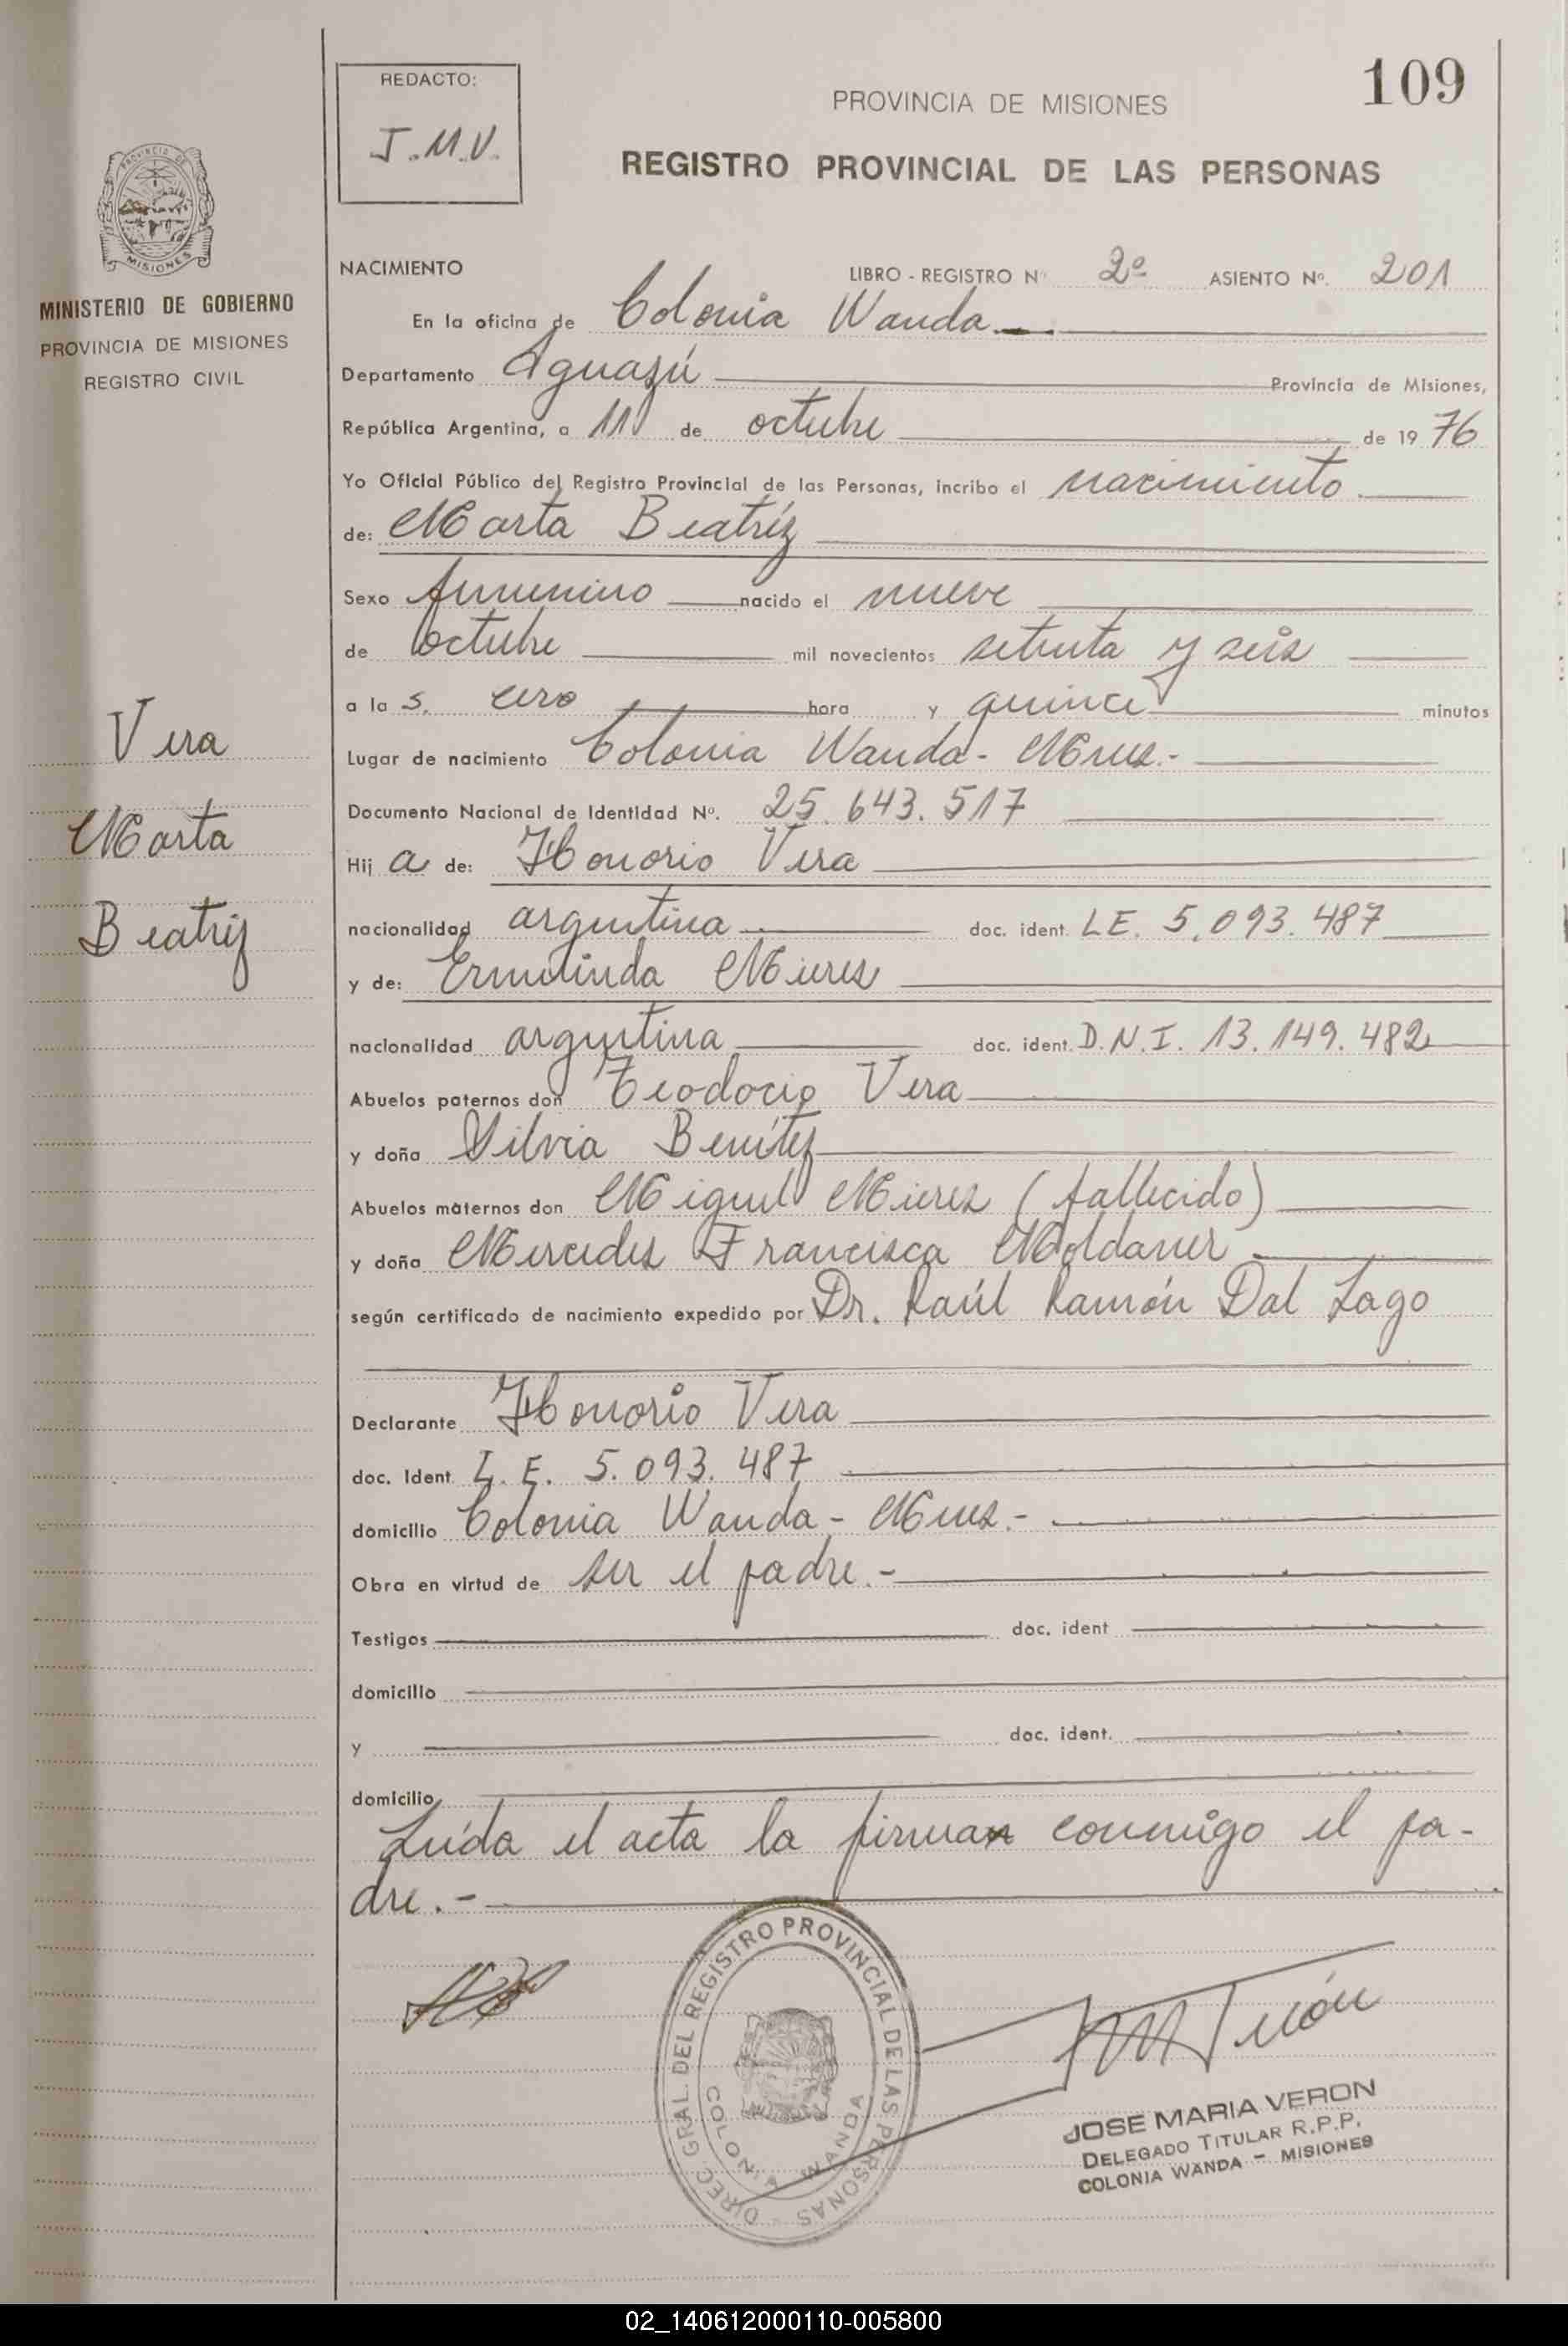 109
REDACTO:
J.M.V.
PROVINCIA DE MISIONES
REGISTRO PROVINCIAL DE LAS PERSONAS
PROVINCIA DE
MISIONES
MINISTERIO DE GOBIERNO
PROVINCIA DE MISIONES
REGISTRO CIVIL
Vera
Marta
Beatriz
NACIMIENTO LIBRO - REGISTRO Nº 2º ASIENTO Nº. 201
En la oficina de Colonia Wanda.-.
Departamento Iguazú Provincia de Misiones,
República Argentina, a 11 de octubre de 19 76
Yo Oficial Público del Registro Provincial de las Personas, incribo el nacimiento
de: Marta Beatríz
Sexo femenino nacido el nueve
de octubre mil novecientos setenta y seis
a la s. cero hora y quince minutos
Lugar de nacimiento Colonia Wanda - Mnes.-
Documento Nacional de Identidad Nº. 25.643.517
Hij a de: Honorio Vera
nacionalidad argentina doc. ident. L.E. 5.093.487
y de: Ermelinda Mierez
nacionalidad argentina doc. ident. D.N.I. 13.149.482
Abuelos paternos don Teodocio Vera
y doña Silvia Benítez
Abuelos maternos don Miguel Mierez (fallecido)
y doña Mercedes Francisca Moldaner
según certificado de nacimiento expedido por Dr. Raúl Ramón Dal Lago
Declarante Honorio Vera
doc. Ident. L.E. 5.093.487
domicilio Colonia Wanda - Mnes.-
Obra en virtud de ser el padre.-
Testigos doc. ident
domicilio
y doc. ident.
domicilio
Leída el acta la firman conmigo el pa-
dre.-
DIREC. GRAL. DEL REGISTRO PROVINCIAL DE LAS PERSONAS
COLONIA WANDA
JOSE MARIA VERON
DELEGADO TITULAR R.P.P.
COLONIA WANDA - MISIONES
02_140612000110-005800